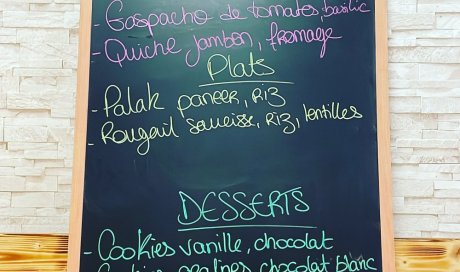 Gaspacho de tomates, basilic
- Quiche jambon, fromage
Plats
- Palak paneer, Riz
- Rougail saucisse, Riz, lentilles
DESSERTS
- Cookies vanille, chocolat
- Cookies pralines, chocolat blanc